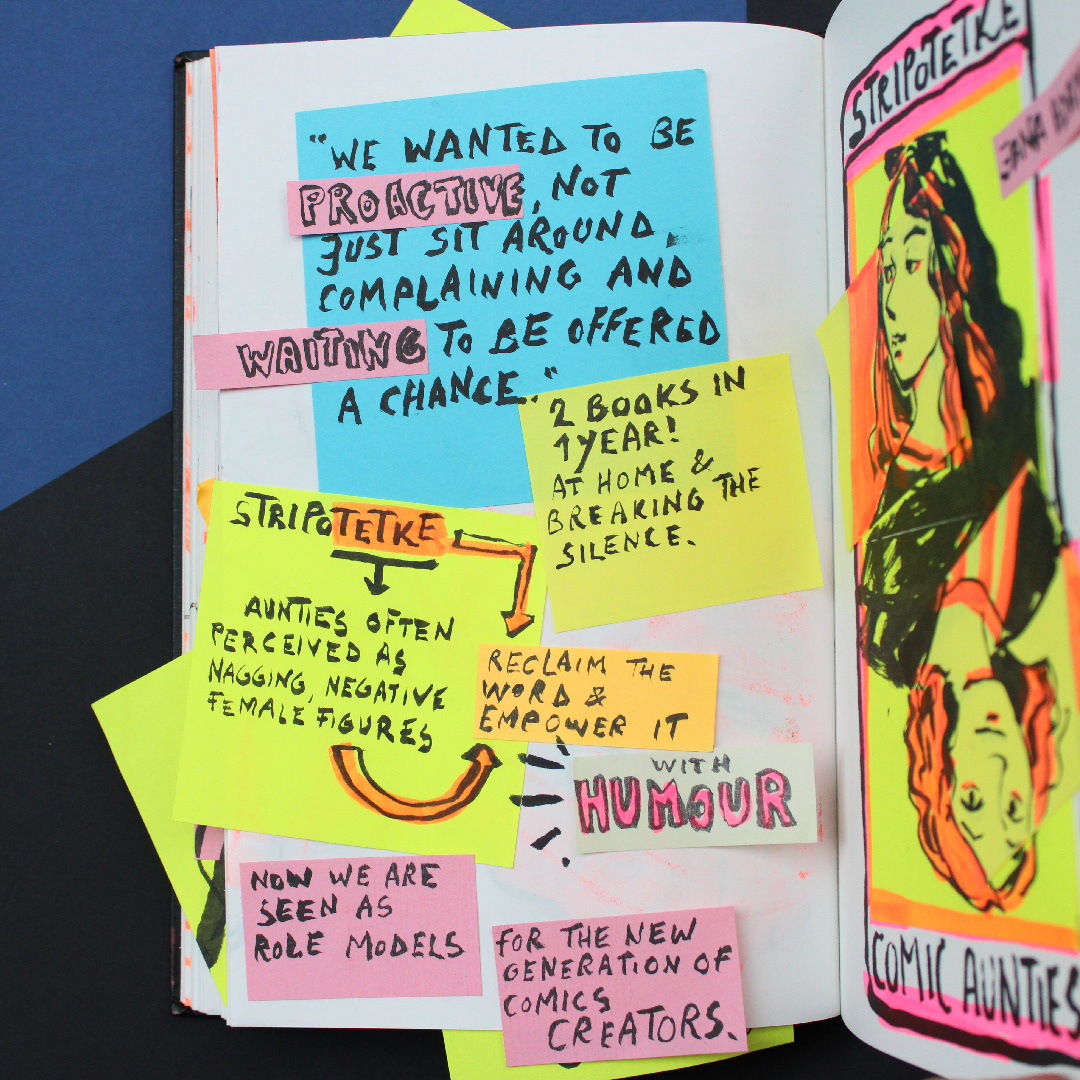 "WE WANTED TO BE
PROACTIVE, NOT
JUST SIT AROUND,
COMPLAINING AND
WAITING TO BE OFFERED
A CHANCE."
2 BOOKS IN
1 YEAR!
AT HOME &
BREAKING THE
SILENCE.
STRIPOTETKE
AUNTIES OFTEN
PERCEIVED AS
NAGGING, NEGATIVE
FEMALE FIGURES
RECLAIM THE
WORD &
EMPOWER IT
WITH
HUMOUR
NOW WE ARE
SEEN AS
ROLE MODELS
FOR THE NEW
GENERATION OF
COMICS
CREATORS.
STRIPOTETKE
COMIC AUNTIES